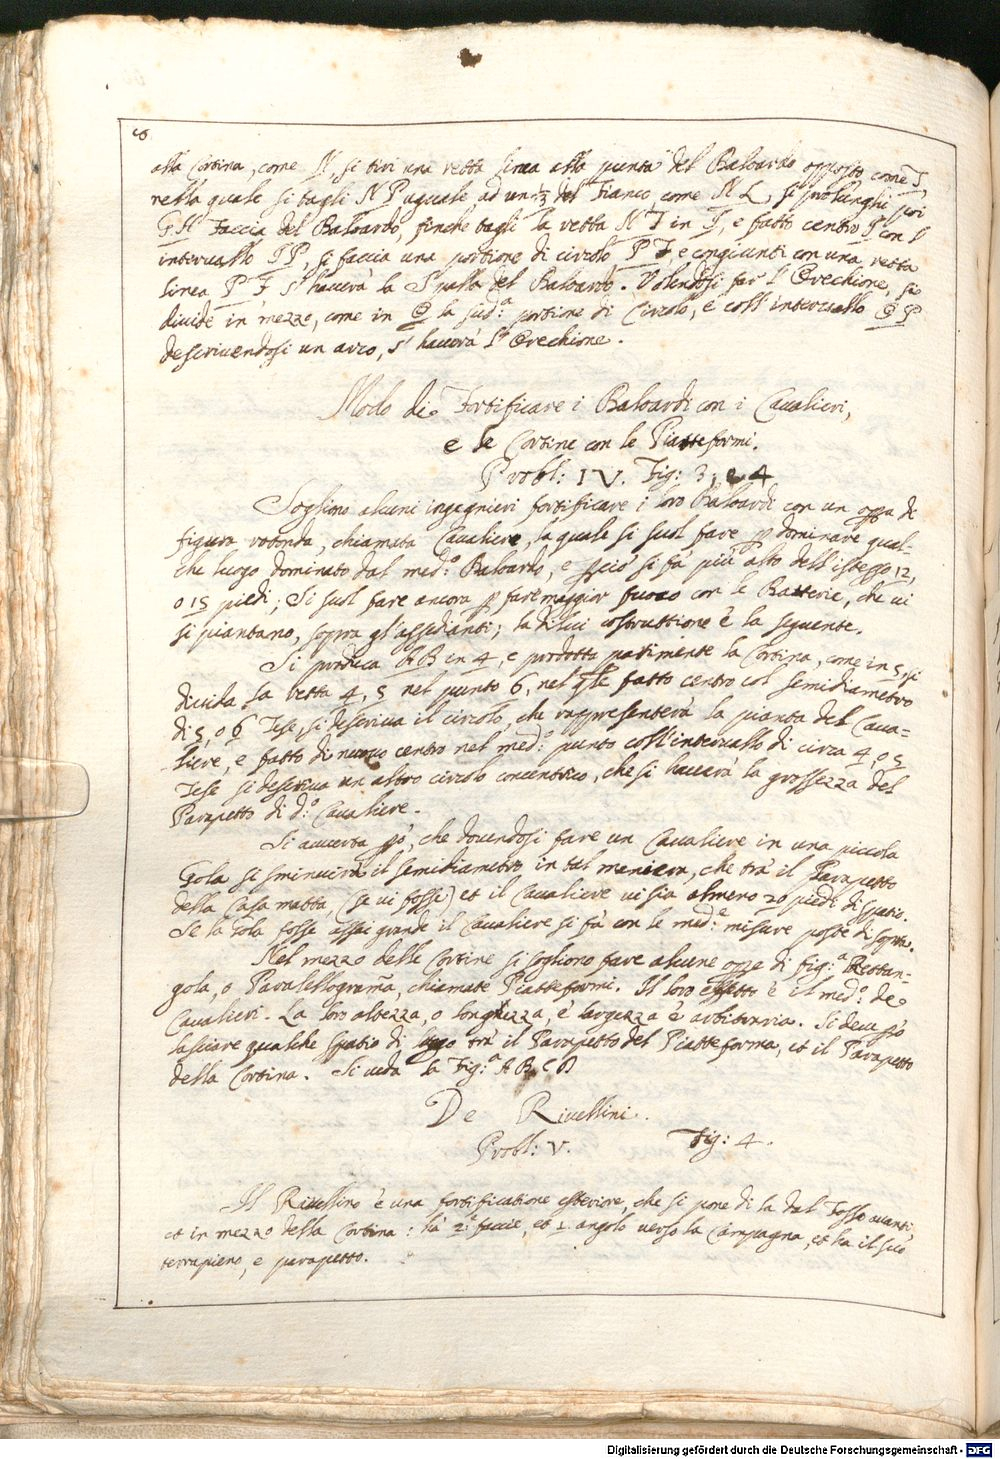 alla Cortina, come N, si tiri una retta linea alla punta del Baloardo opposto, come I,
nella quale si tagli N P uguale ad un 1/3 del Fianco, come N L, si prolunghi poi
G H Faccia del Baloardo, finche tagli la retta N I in I, e fatto centro I con l'
intervallo I P, si faccia una portione di circolo P F e congiunti con una retta
linea P F s' haverà la Spalla del Baloardo. Volendosi far l' Orechione, si
divide in mezzo, come in Q la sud:ª portione di Circolo, e coll' intervallo Q P
descrivendosi un arco, s' haverà l' Orechione.
Modo di Fortificare i Baloardi con i Cavalieri,
e le Cortine con le Piatteformi.
Probl: IV. Fig: 3, e 4
Sogliono alcuni ingegnieri fortificare i loro Baloardi con un opra di
figura rotonda, chiamata Cavaliere, la quale si suol fare p dominare qual-
che luogo dominato dal med:º Baloardo, e pciò si fà più alto dell' istesso 12,
o 15 piedi; Si suol fare ancora p fare maggior fuoco con le Batterie, che ui
si piantano, sopra gl' assedianti; la di lui costruttione è la seguente.
Si produca A B in 4, e prodotta parimente la Cortina, come in 5, si
divida la retta 4, 5 nel punto 6, nel qle fatto centro col semidiametro
di 5, o 6 Tese, si descriva il circolo, che rappresenterà la pianta del Cava-
liere, e fatto di nuovo centro nel med:º punto coll' intervallo di circa 4, o 5
Tese si descriva un altro circolo concentrico, che si haverà la grossezza del
Parapetto di d:º Cavaliere.
Si avverta pò, che dovendosi fare un Cavaliere in una piccola
Gola si sminuirà il semidiametro in tal maniera, che trà il Parapetto
della Casa matta, (se vi fosse) et il Cavaliere vi sia almeno 20 piedi di spatio.
Se la Gola fosse assai grande il Cavaliere si fà con le med:e misure poste di sopra.
Nel mezzo delle Cortine si sogliono fare alcune opre di fig:ª Rettan-
gola, o Paralellogramã, chiamate Piatteformi. Il loro effetto è il med:º de
Cavalieri. La loro altezza, o longhezza, e largezza è arbitraria. Si deve pò
lasciare qualche spatio di luogo trà il Parapetto del Piatteforma, et il Parapetto
della Cortina. Si veda la Fig:ª A B C D
De Rivellini.
Probl: V. Fig: 4.
Il Rivellino è una fortificatione esteriore, che si pone di la dal Fosso avanti,
et in mezzo della Cortina: hà 2 faccie, et 1 angolo verso la Campagna, et ha il suo
terrapieno, e parapetto.
Digitalisierung gefördert durch die Deutsche Forschungsgemeinschaft - DFG